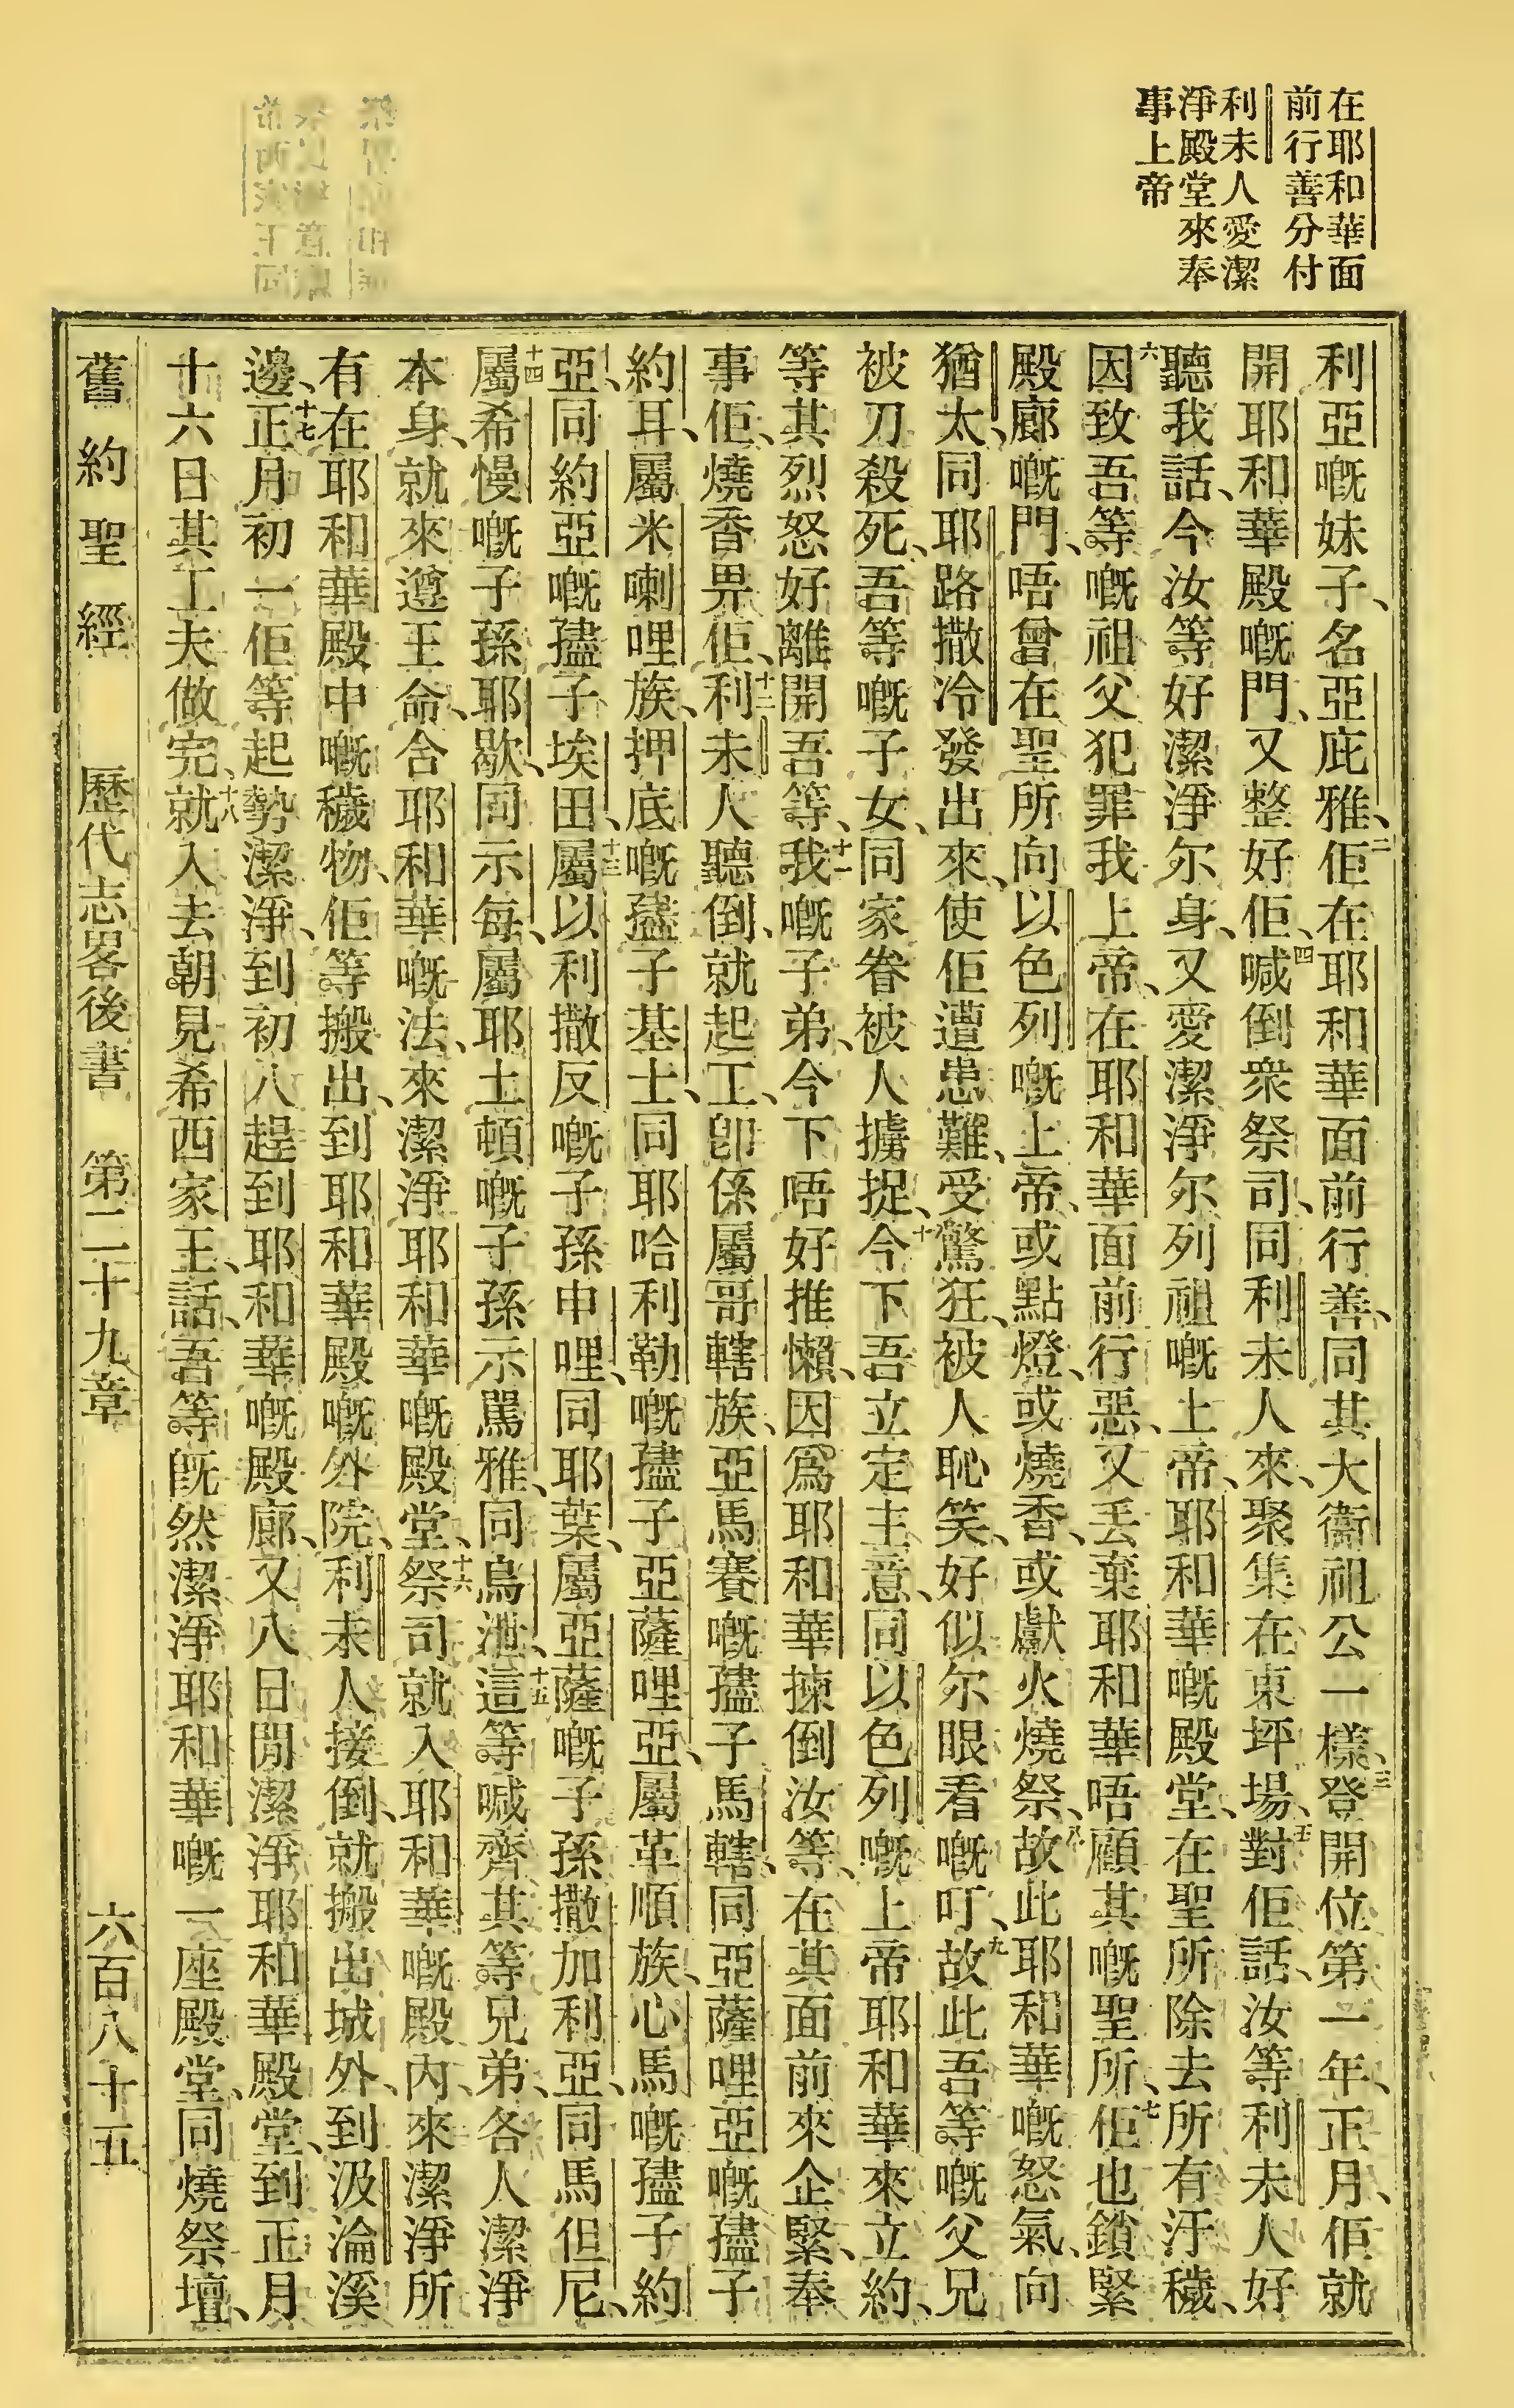 在耶和華面
前行善分付
利未人愛潔
淨殿堂來奉
事上帝
利亞嘅妹子、名亞庇雅、二佢在耶和華面前行善、同其大衞祖公一樣、三登開位第一年、正月、佢就
開耶和華殿嘅門、又整好佢、四喊倒衆祭司、同利未人來、聚集在東坪場、五對佢話、汝等利未人好
聽我話、今汝等好潔淨尔身、又愛潔淨尔列祖嘅上帝、耶和華嘅殿堂、在聖所除去所有汙穢、
六因致吾等嘅祖父犯罪我上帝、在耶和華面前行惡、又丢棄耶和華唔顧其嘅聖所、七佢也鎖緊
殿廊嘅門、唔曾在聖所向以色列嘅上帝、或點燈、或燒香、或獻火燒祭、八故此耶和華嘅怒氣、向
猶太、同耶路撒冷發出來、使佢遭患難、受驚狂、被人恥笑、好似尔眼看嘅叮、九故此吾等嘅父兄
被刃殺死、吾等嘅子女、同家眷被人擄捉、十今下吾立定主意、同以色列嘅上帝耶和華來立約、
等其烈怒好離開吾等、十一我嘅子弟、今下唔好推懶、因爲耶和華揀倒汝等、在其面前來企緊、奉
事佢、燒香畀佢、十二利未人聽倒、就起工、卽係屬哥轄族、亞馬賽嘅孻子馬轄、同亞薩哩亞嘅孻子
約耳、屬米喇哩族、押底嘅孻子基士、同耶哈利勒嘅孻子亞薩哩亞、屬革順族、心馬嘅孻子約
亞、同約亞嘅孻子埃田、十三屬以利撒反嘅子孫申哩、同耶葉、屬亞薩嘅子孫撒加利亞、同馬但尼、
十四屬希慢嘅子孫耶歇、同示每、屬耶土頓嘅子孫示罵雅、同烏泄、十五這等喊齊其等兄弟、各人潔淨
本身、就來遵王命、合耶和華嘅法、來潔淨耶和華嘅殿堂、十六祭司就入耶和華嘅殿內、來潔淨所
有在耶和華殿中嘅穢物、佢等搬出、到耶和華殿嘅外院、利未人接倒、就搬出城外、到汲淪溪
邊、十七正月初一佢等起勢潔淨、到初八趕到耶和華嘅殿廊、又八日間潔淨耶和華殿堂、到正月
十六日其工夫做完、十八就入去朝見希西家王、話、吾等旣然潔淨耶和華嘅一座殿堂、同燒祭壇、
舊約聖經　歷代志畧後書　第二十九章　六百八十五